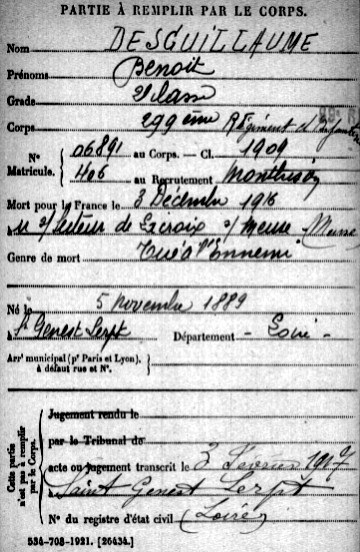 PARTIE À REMPLIR PAR LE CORPS.
Nom DESGUILLAUME
Prénoms Benoit
Grade 2e classe
Corps 299ème Régiment d'Infanterie
N° Matricule. { 06891 au Corps. — Cl. 1909
406 au Recrutement Montbrison
Mort pour la France le 3 Décembre 1916
à secteur de Lacroix s/ Meuse - Meuse
Genre de mort Tué à l'Ennemi
Né le 5 novembre 1889
à St Genest Lerpt Département - Loire -
Arrt municipal (pr Paris et Lyon), à défaut rue et N°. }
Cette partie n'est pas à remplir par le Corps.
Jugement rendu le
par le Tribunal de
acte ou jugement transcrit le 3 Février 1917
à Saint Genest Lerpt
N° du registre d'état civil (Loire)
534-708-1921. [26434.]